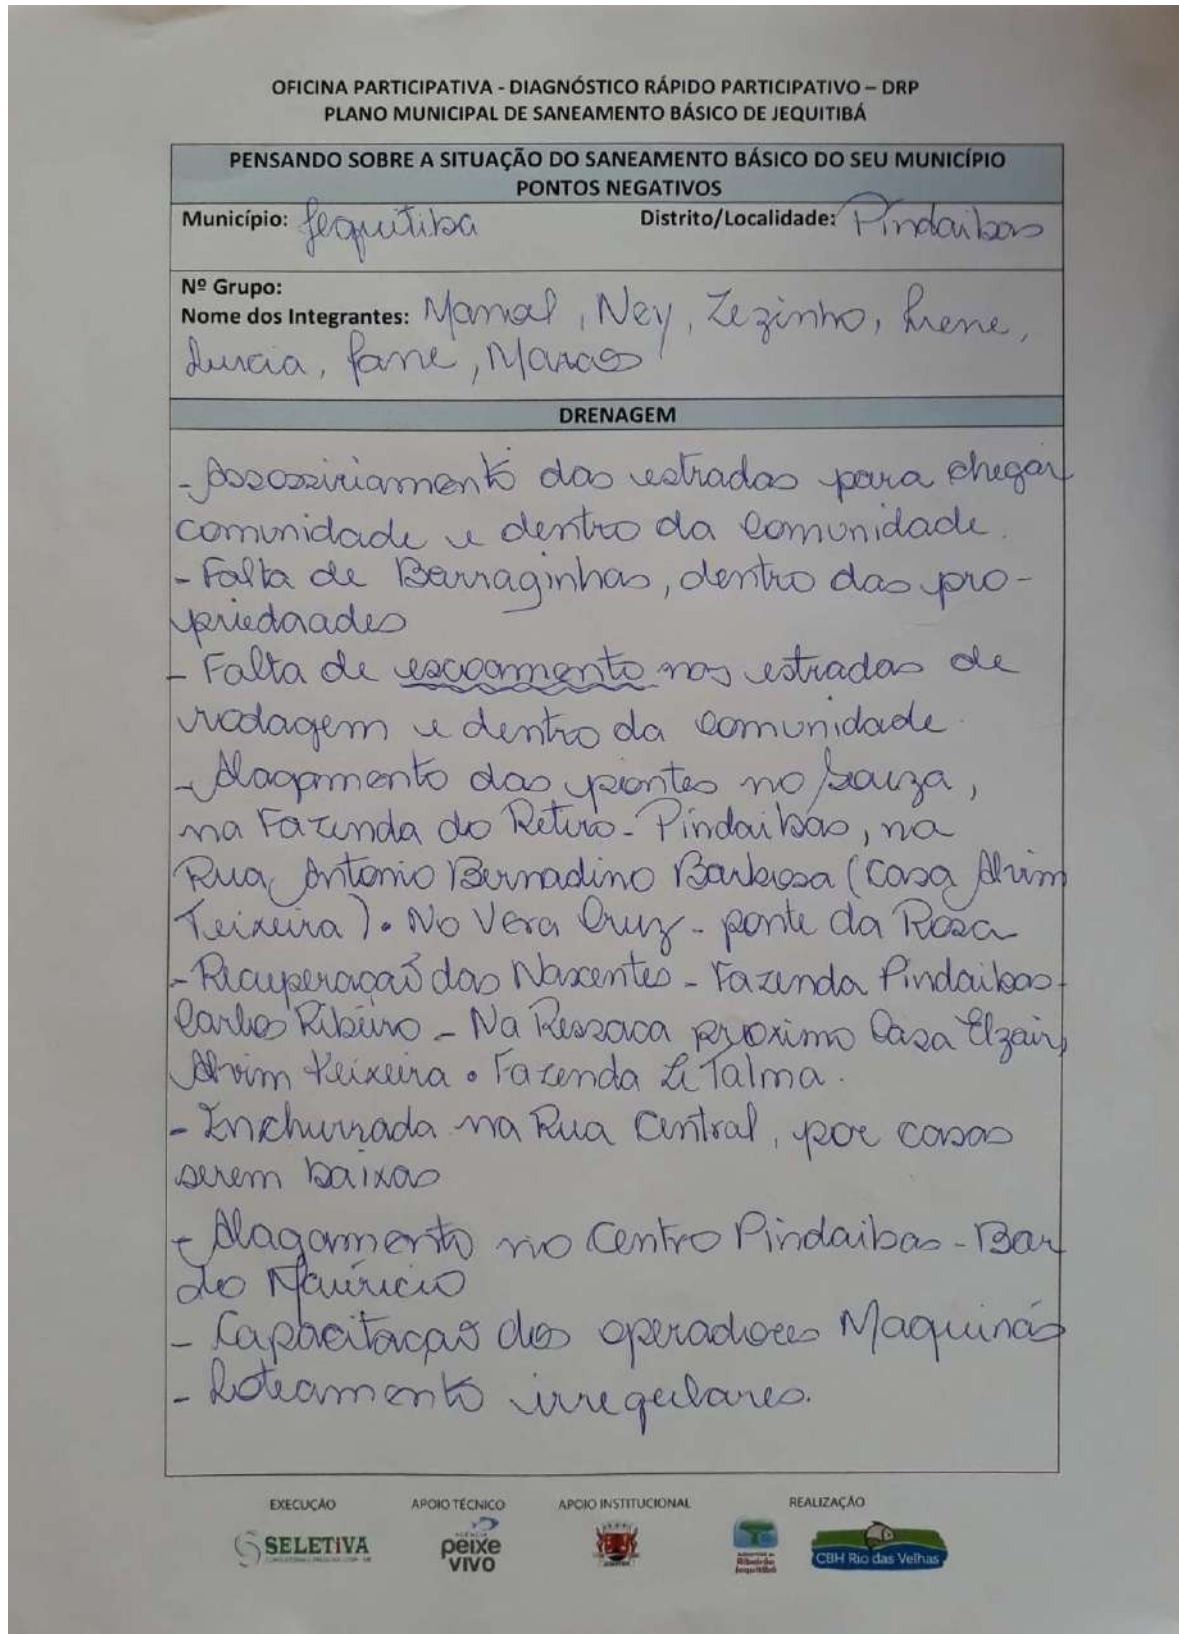 OFICINA PARTICIPATIVA - DIAGNÓSTICO RÁPIDO PARTICIPATIVO – DRP
PLANO MUNICIPAL DE SANEAMENTO BÁSICO DE JEQUITIBÁ
PENSANDO SOBRE A SITUAÇÃO DO SANEAMENTO BÁSICO DO SEU MUNICÍPIO
PONTOS NEGATIVOS
Município: Jequitiba Distrito/Localidade: Pindaibas
Nº Grupo:
Nome dos Integrantes: Manoel, Ney, Zezinho, Irene,
Lucia, Jane, Marcos
DRENAGEM
- das estradas para chegar
comunidade e dentro da comunidade.
- Falta de Barraginhas, dentro das pro-
priedaades
- Falta de escoamento nas estradas de
rodagem e dentro da comunidade.
- Alagamento das pontes no Souza,
na Fazenda do Retiro - Pindaibas, na
Rua Antonio Bernadino Barbosa (Casa Alvim
Teixeira). No Vera Cruz - ponte da Rosa
- Recuperação das Nascentes - Fazenda Pindaibas -
Carlos Ribeiro - Na Ressaca proximo Casa Elzair,
Alvim Teixeira. Fazenda Talma.
- Inchurrada na Rua Central, por casas
serem baixas
- Alagamento no Centro Pindaibas - Bar
do Maúricio
- Capacitaçao dos operadores Maquinás
- Loteamento irregulares.
EXECUÇÃO APOIO TÉCNICO APOIO INSTITUCIONAL REALIZAÇÃO
SELETIVA
AGÊNCIA
peixe
vivo
Ribeirão
Jequitibá
CBH Rio das Velhas